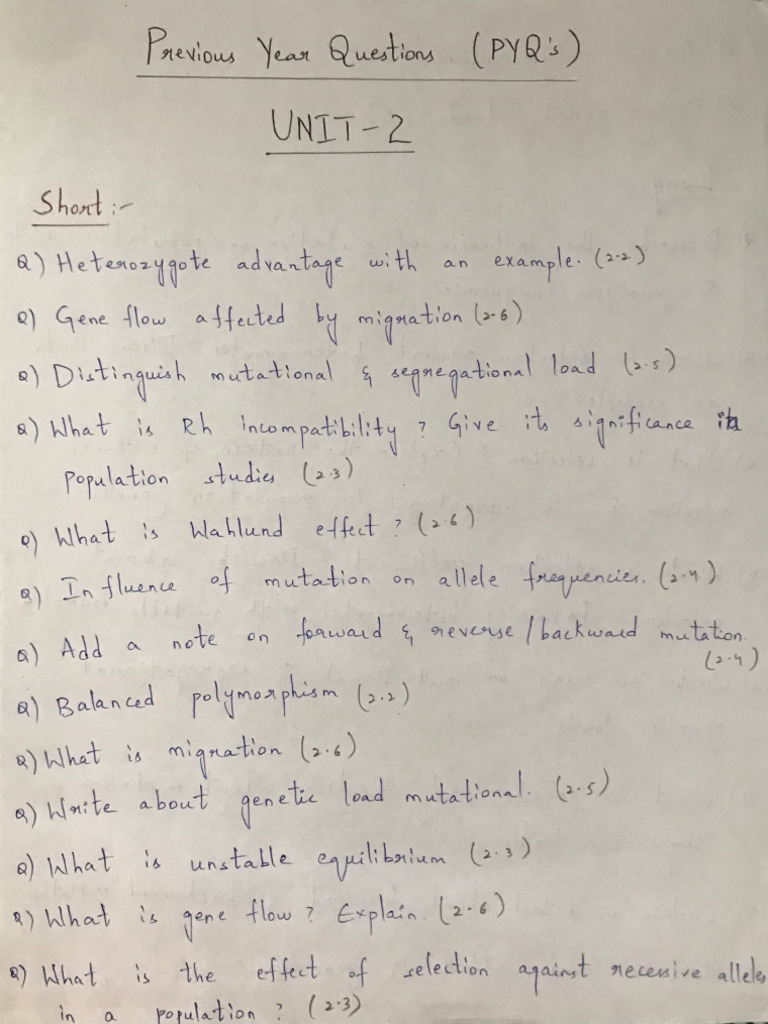 Previous Year Questions (PYQ's)
UNIT-2
Short:-
Q) Heterozygote advantage with an example. (2.2)
Q) Gene flow affected by migration (2.6)
Q) Distinguish mutational & segregational load (2.5)
Q) What is Rh incompatibility? Give its significance in
population studies (2.3)
Q) What is Wahlund effect? (2.6)
Q) Influence of mutation on allele frequencies. (2.4)
Q) Add a note on forward & reverse/backward mutation.
(2.4)
Q) Balanced polymorphism (2.2)
Q) What is migration (2.6)
Q) Write about genetic load mutational. (2.5)
Q) What is unstable equilibrium (2.3)
Q) What is gene flow? Explain. (2.6)
Q) What is the effect of selection against recessive alleles
in a population? (2.3)